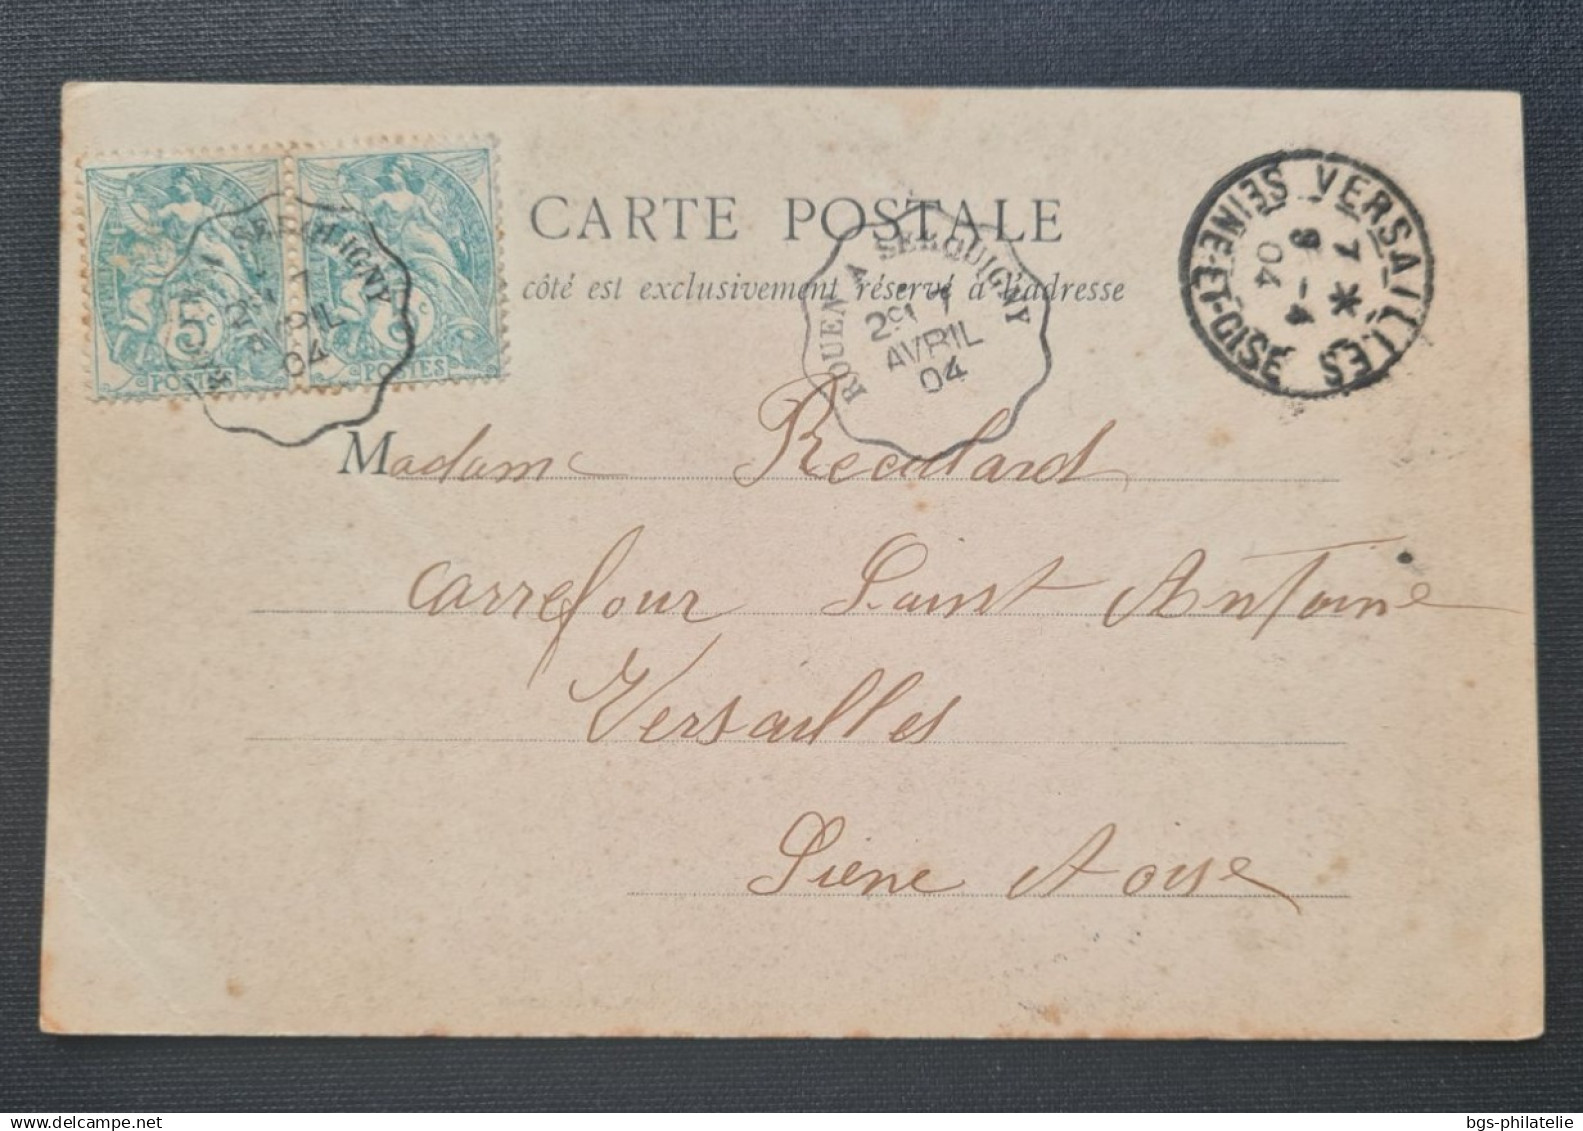 CARTE POSTALE
côté est exclusivement réservé à l'adresse
5c
POSTES
POSTES
SERQUIGNY
AVRIL
04
ROUEN A SERQUIGNY
2° 1
AVRIL
04
VERSAILLES
SEINE-ET-OISE
7 *
9 - 4
04
Madame Recullard
Carrefour Saint Antoine
Versailles
Siene et Oise
bgs-philatelie